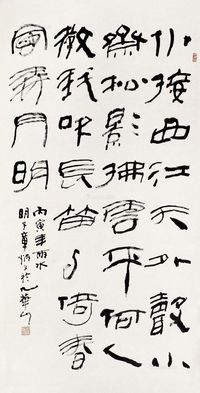 水接西江天外聲小
齋松影拂雲平何人
教我吹長笛与倚春
風弄月明
丙寅年雨水
明子章